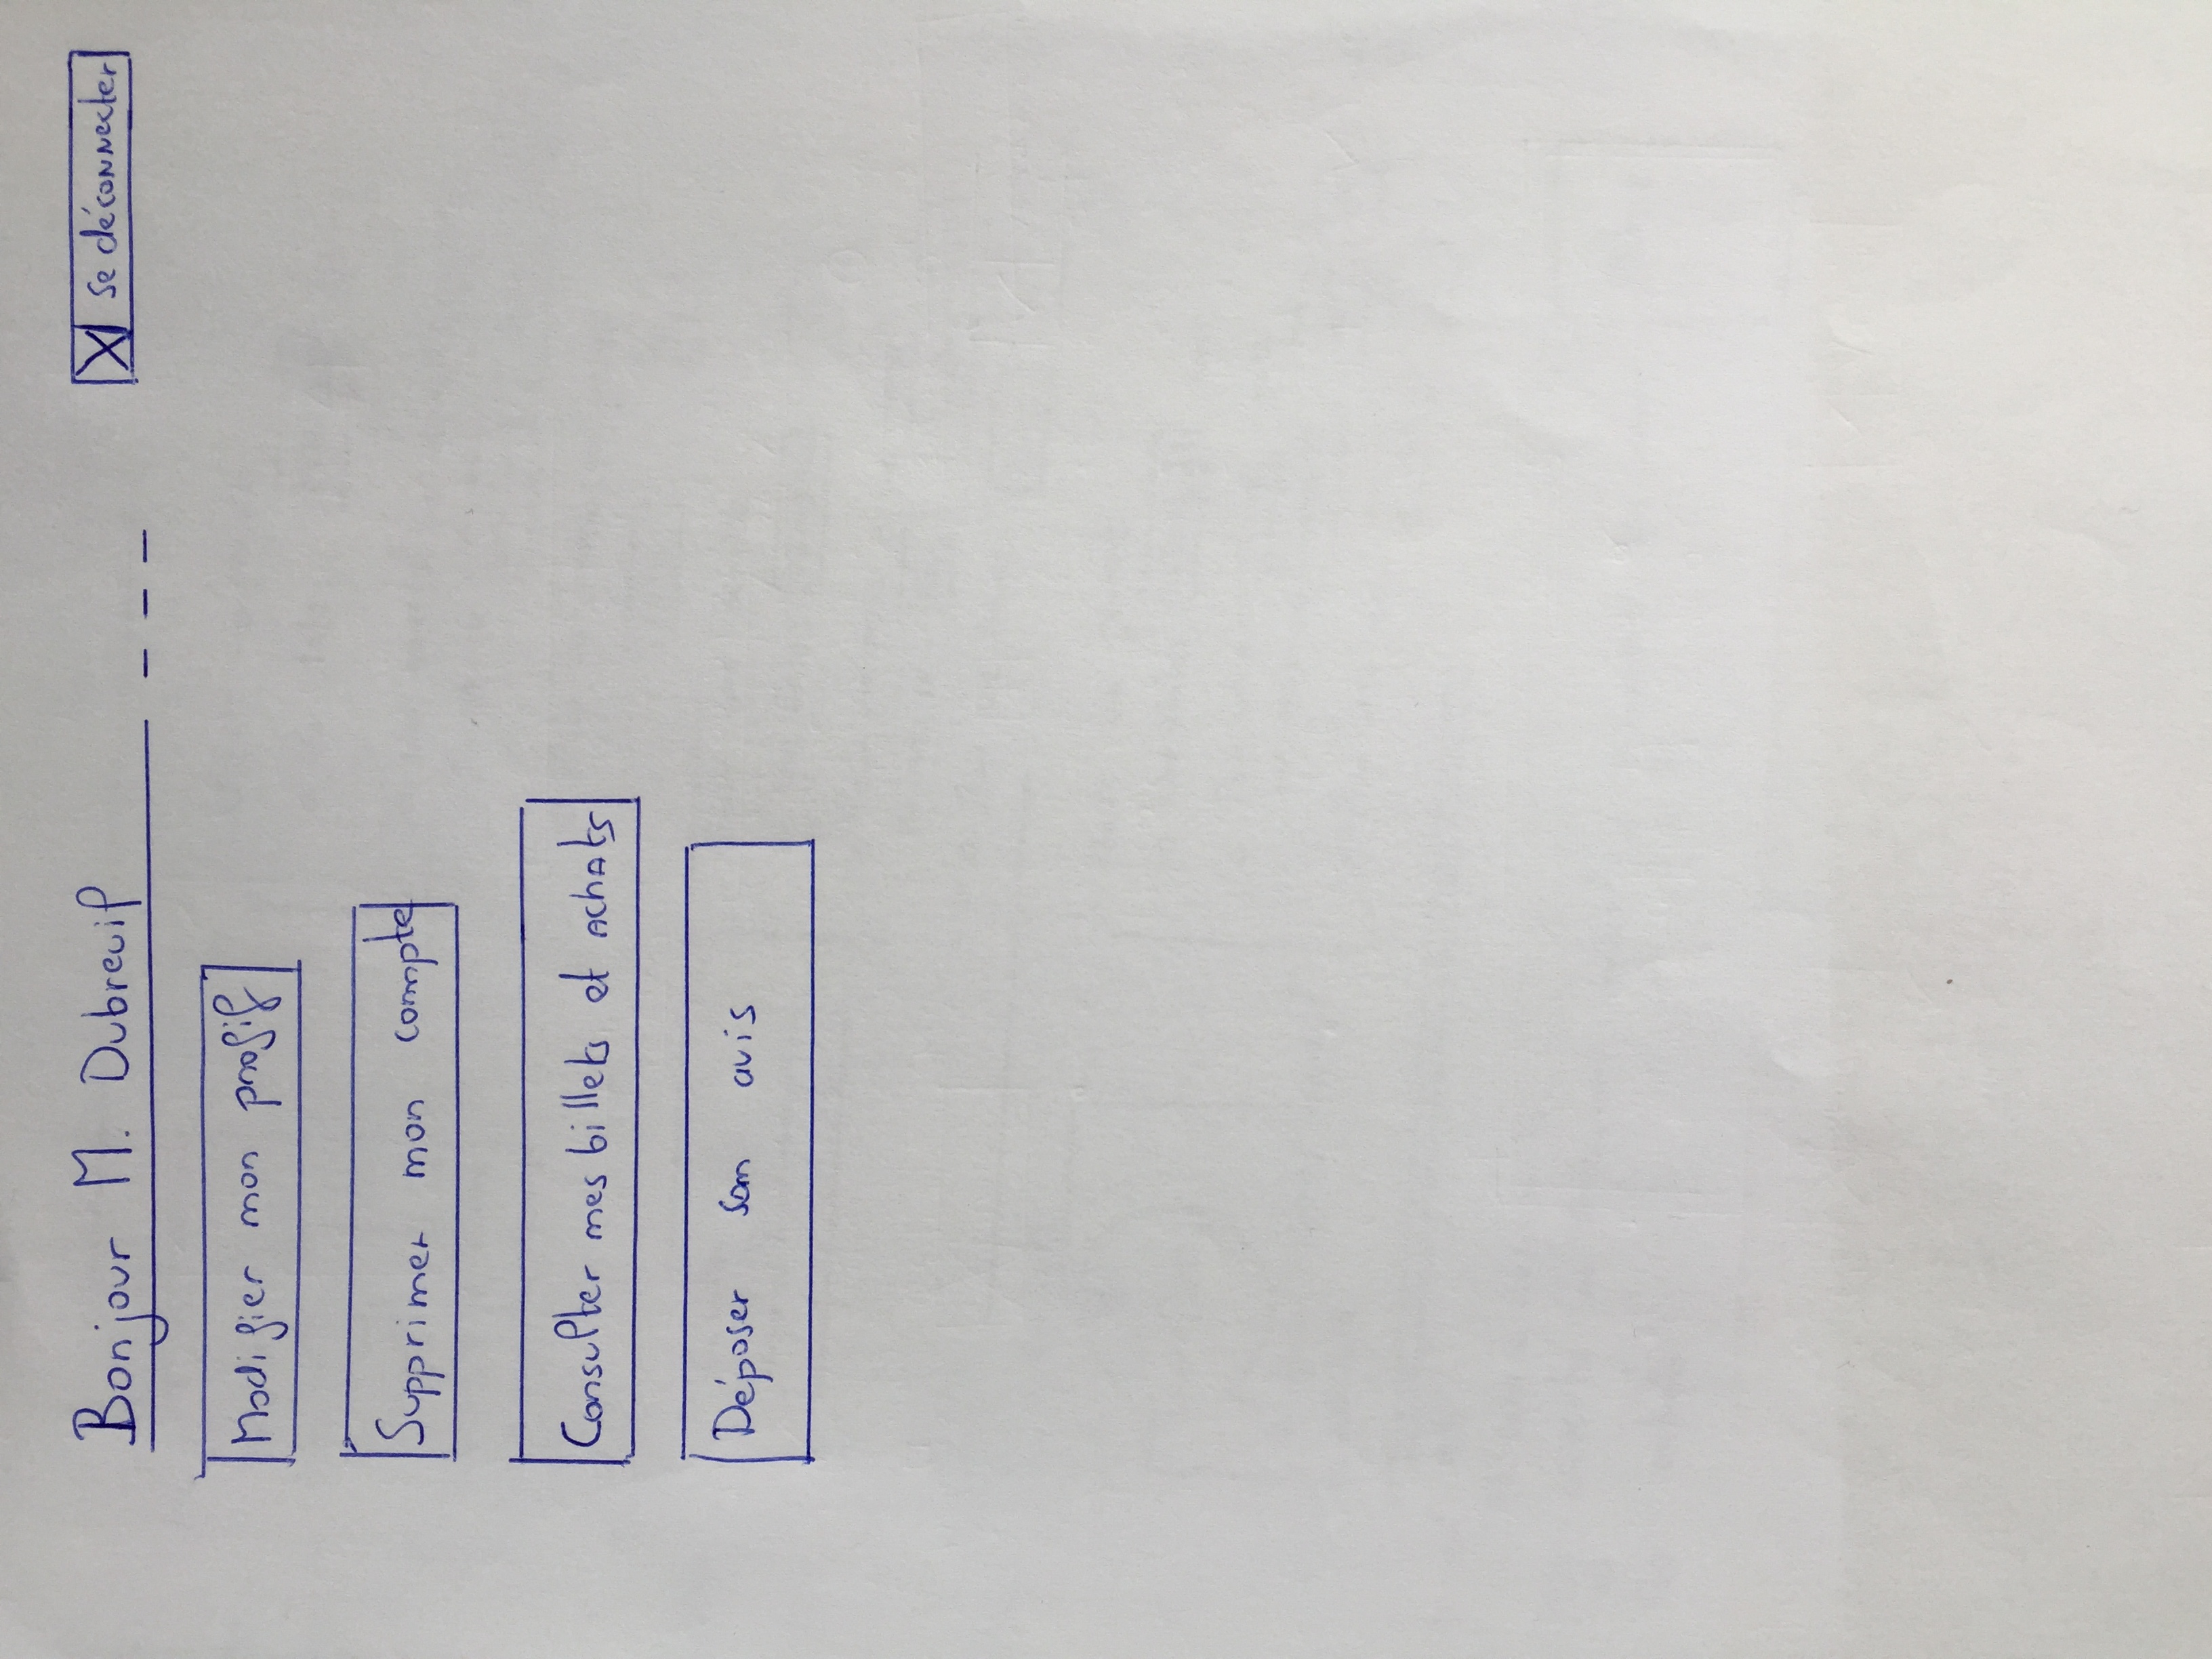 Bonjour M. Dubreuil
X se déconnecter
Modifier mon profil
Supprimer mon compte
Consulter mes billets et achats
Déposer son avis